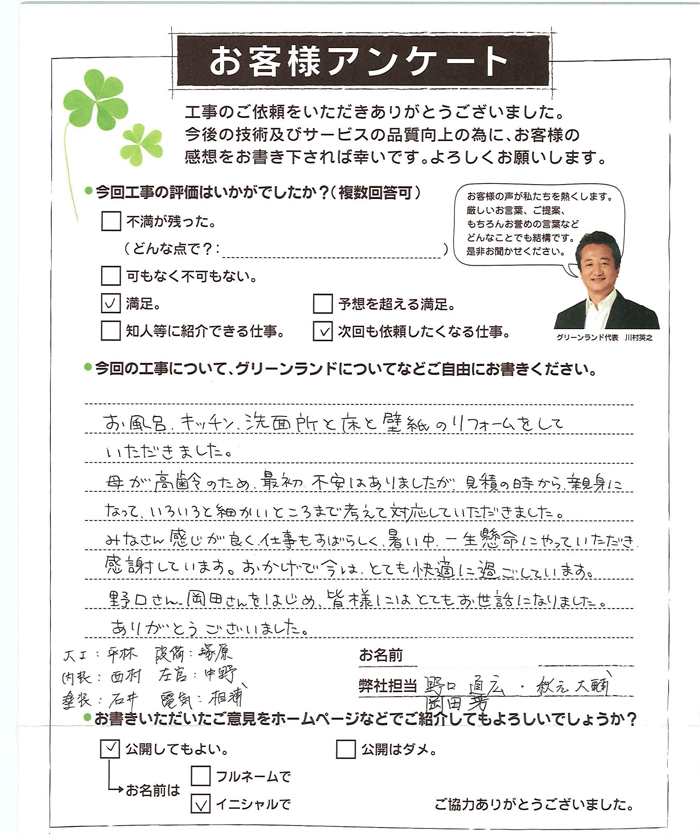 お客様アンケート
工事のご依頼をいただきありがとうございました。
今後の技術及びサービスの品質向上の為に、お客様の
感想をお書き下されば幸いです。よろしくお願いします。
今回工事の評価はいかがでしたか?(複数回答可)
不満が残った。
(どんな点で?: )
可もなく不可もない。
満足。
予想を超える満足。
知人等に紹介できる仕事。
次回も依頼したくなる仕事。
お客様の声が私たちを熱くします。
厳しいお言葉、ご提案、
もちろんお誉めの言葉など
どんなことでも結構です。
是非お聞かせください。
グリーンランド代表 川村英之
今回の工事について、グリーンランドについてなどご自由にお書きください。
お風呂、キッチン、洗面所と床と壁紙のリフォームをして
いただきました。
母が高齢のため、最初、不安はありましたが、見積の時から、親身に
なって、いろいろと細かいところまで考えて対応していただきました。
みなさん感じが良く、仕事もすばらしく、暑い中、一生懸命にやっていただき、
感謝しています。おかげで今は、とても快適に過ごしています。
野口さん、岡田さんをはじめ、皆様にはとてもお世話になりました。
ありがとうございました。
大工:平林 設備:塚原
内装:西村 左官:中野
塗装:石井 電気:相浦
お名前
弊社担当 野口 直広・秋元 大輔
岡田
お書きいただいたご意見をホームページなどでご紹介してもよろしいでしょうか?
公開してもよい。
公開はダメ。
お名前は
フルネームで
イニシャルで
ご協力ありがとうございました。